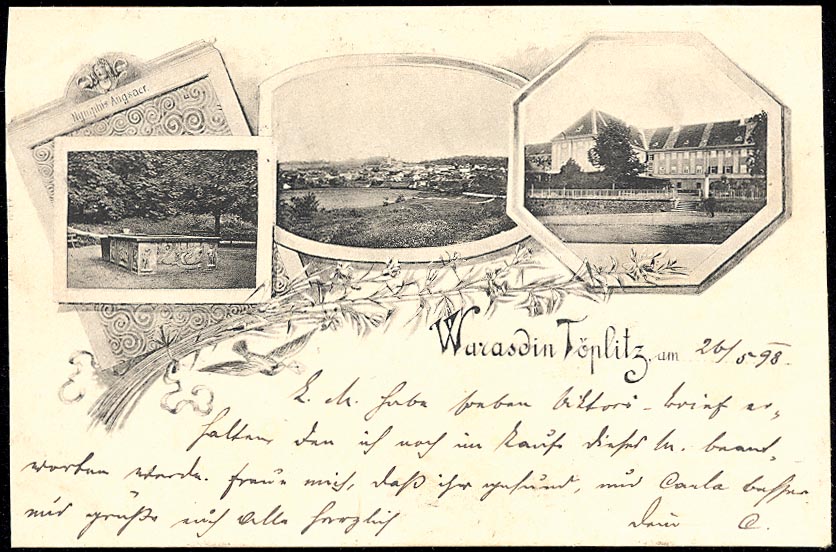 Nymphis Augsacr.
Warasdin Töplitz, am 26/5 98.
L. M. habe soeben Viktors-brief er-
halten, den ich noch im Laufe dieses M. beant-
worten werde. Freue mich, daß ihr gesund, und Carla besser
und grüße euch Alle herzlich
Dein C.